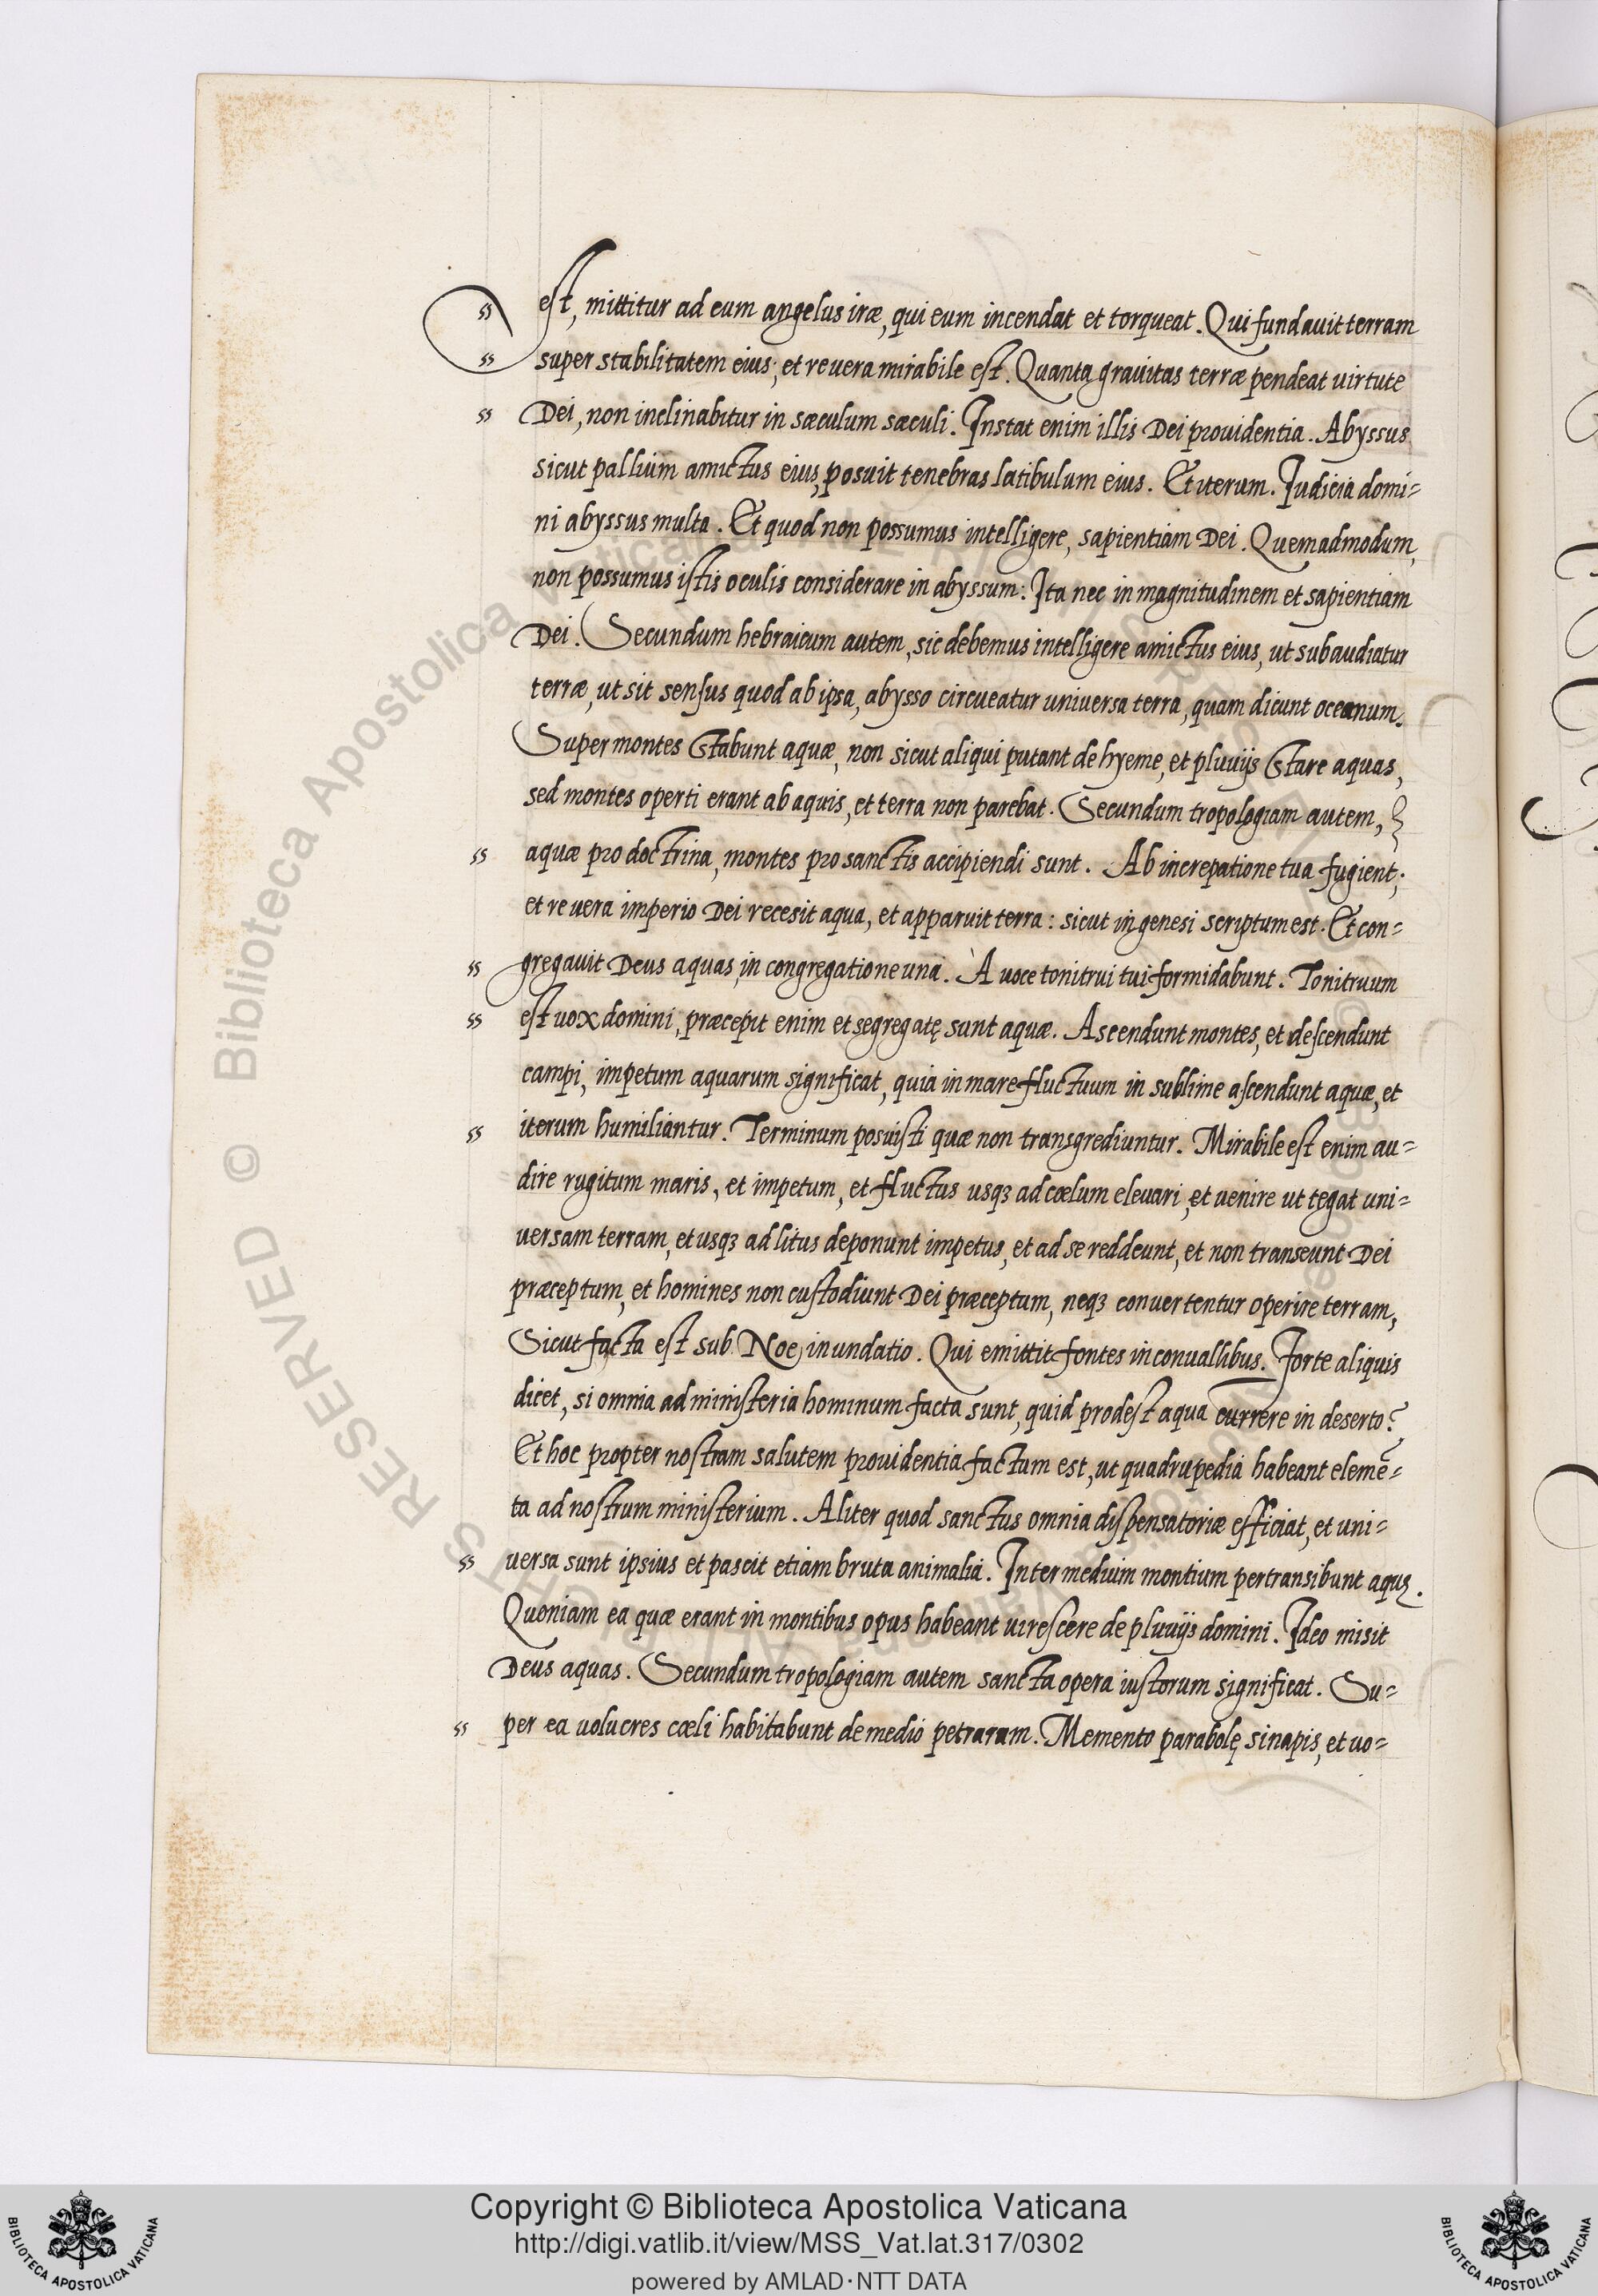 est, mittitur ad eum angelus iræ, qui eum incendat et torqueat. Qui fundauit terram
super stabilitatem eius; et re uera mirabile est. Quanta grauitas terræ pendeat uirtute
Dei, non inclinabitur in sæculum sæculi. Instat enim illis Dei prouidentia. Abyssus
sicut pallium amictus eius, posuit tenebras latibulum eius. Et iterum. Iudicia domi=
ni abyssus multa. Et quod non possumus intelligere, sapientiam Dei. Quemadmodum,
non possumus istis oculis considerare in abyssum: Ita nec in magnitudinem et sapientiam
Dei. Secundum hebraicum autem, sic debemus intelligere amictus eius, ut subaudiatur
terræ, ut sit sensus quod ab ipsa, abysso circueatur uniuersa terra, quam dicunt oceanum.
Super montes stabunt aquæ, non sicut aliqui putant de hyeme, et pluuijs stare aquas,
sed montes operti erant ab aquis, et terra non parebat. Secundum tropologiam autem,
aquæ pro doctrina, montes pro sanctis accipiendi sunt. Ab increpatione tua fugient;
et re uera imperio Dei recesit aqua, et apparuit terra: sicut in genesi scriptum est. Et con=
gregauit Deus aquas, in congregatione una. A uoce tonitrui tui formidabunt. Tonitruum
est uox domini, præcepit enim et segregatę sunt aquæ. Ascendunt montes, et descendunt
campi, impetum aquarum significat, quia in mare fluctuum in sublime ascendunt aquæ, et
iterum humiliantur. Terminum posuisti quæ non transgrediuntur. Mirabile est enim au=
dire rugitum maris, et impetum, et fluctus usqꝫ ad cœlum eleuari, et uenire ut tegat uni=
uersam terram, et usqꝫ ad litus deponunt impetus, et ad se reddeunt, et non transeunt Dei
præceptum, et homines non custodiunt Dei præceptum, neqꝫ conuertentur operire terram,
Sicut facta est sub Noe inundatio. Qui emittit fontes in conuallibus. Forte aliquis
dicet, si omnia ad ministeria hominum facta sunt, quid prodest aqua currere in deserto?
Et hoc propter nostram salutem prouidentia factum est, ut quadrupedia habeant elemē=
ta ad nostrum ministerium. Aliter quod sanctus omnia dispensatoriæ efficiat, et uni=
uersa sunt ipsius et pascit etiam bruta animalia. Inter medium montium pertransibunt aquę.
Quoniam ea quæ erant in montibus opus habeant uirescere de pluuijs domini. Ideo misit
Deus aquas. Secundum tropologiam autem sancta opera iustorum significat. Su=
per ea uolucres cœli habitabunt de medio petrarum. Memento parabolę sinapis, et uo=
RESERVED © Biblioteca Apostolica Vaticana
Copyright © Biblioteca Apostolica Vaticana
http://digi.vatlib.it/view/MSS_Vat.lat.317/0302
powered by AMLAD·NTT DATA
BIBLIOTECA APOSTOLICA VATICANA
BIBLIOTECA APOSTOLICA VATICANA